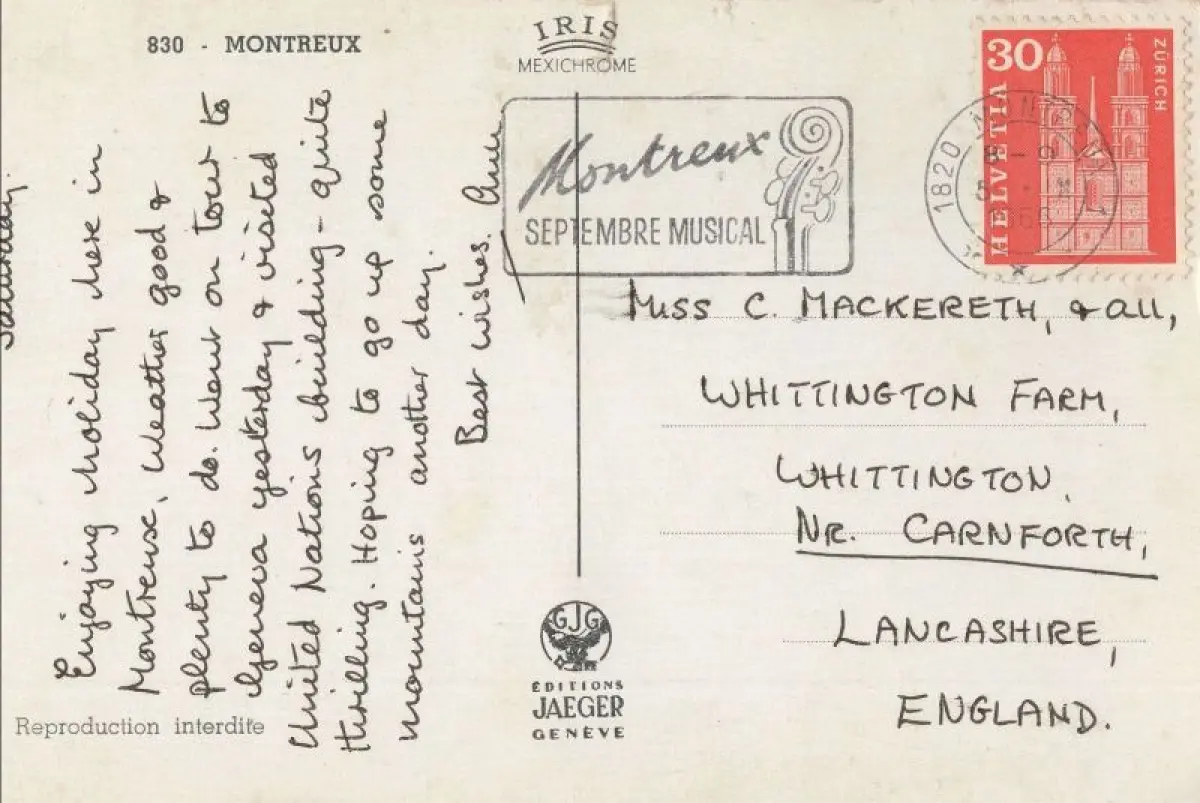 830 - MONTREUX
IRIS
MEXICHROME
Saturday.
Enjoying holiday here in
Montreux, Weather good &
plenty to do. Went on tour to
Geneva yesterday & visited
United Nations building - quite
thrilling. Hoping to go up some
mountains another day.
Best wishes.
Montreux
SEPTEMBRE MUSICAL
1820 MONTREUX
30
HELVETIA
ZÜRICH
MISS C. MACKERETH, & all,
WHITTINGTON FARM,
WHITTINGTON,
NR. CARNFORTH,
LANCASHIRE,
ENGLAND.
GJG
ÉDITIONS
JAEGER
GENÈVE
Reproduction interdite